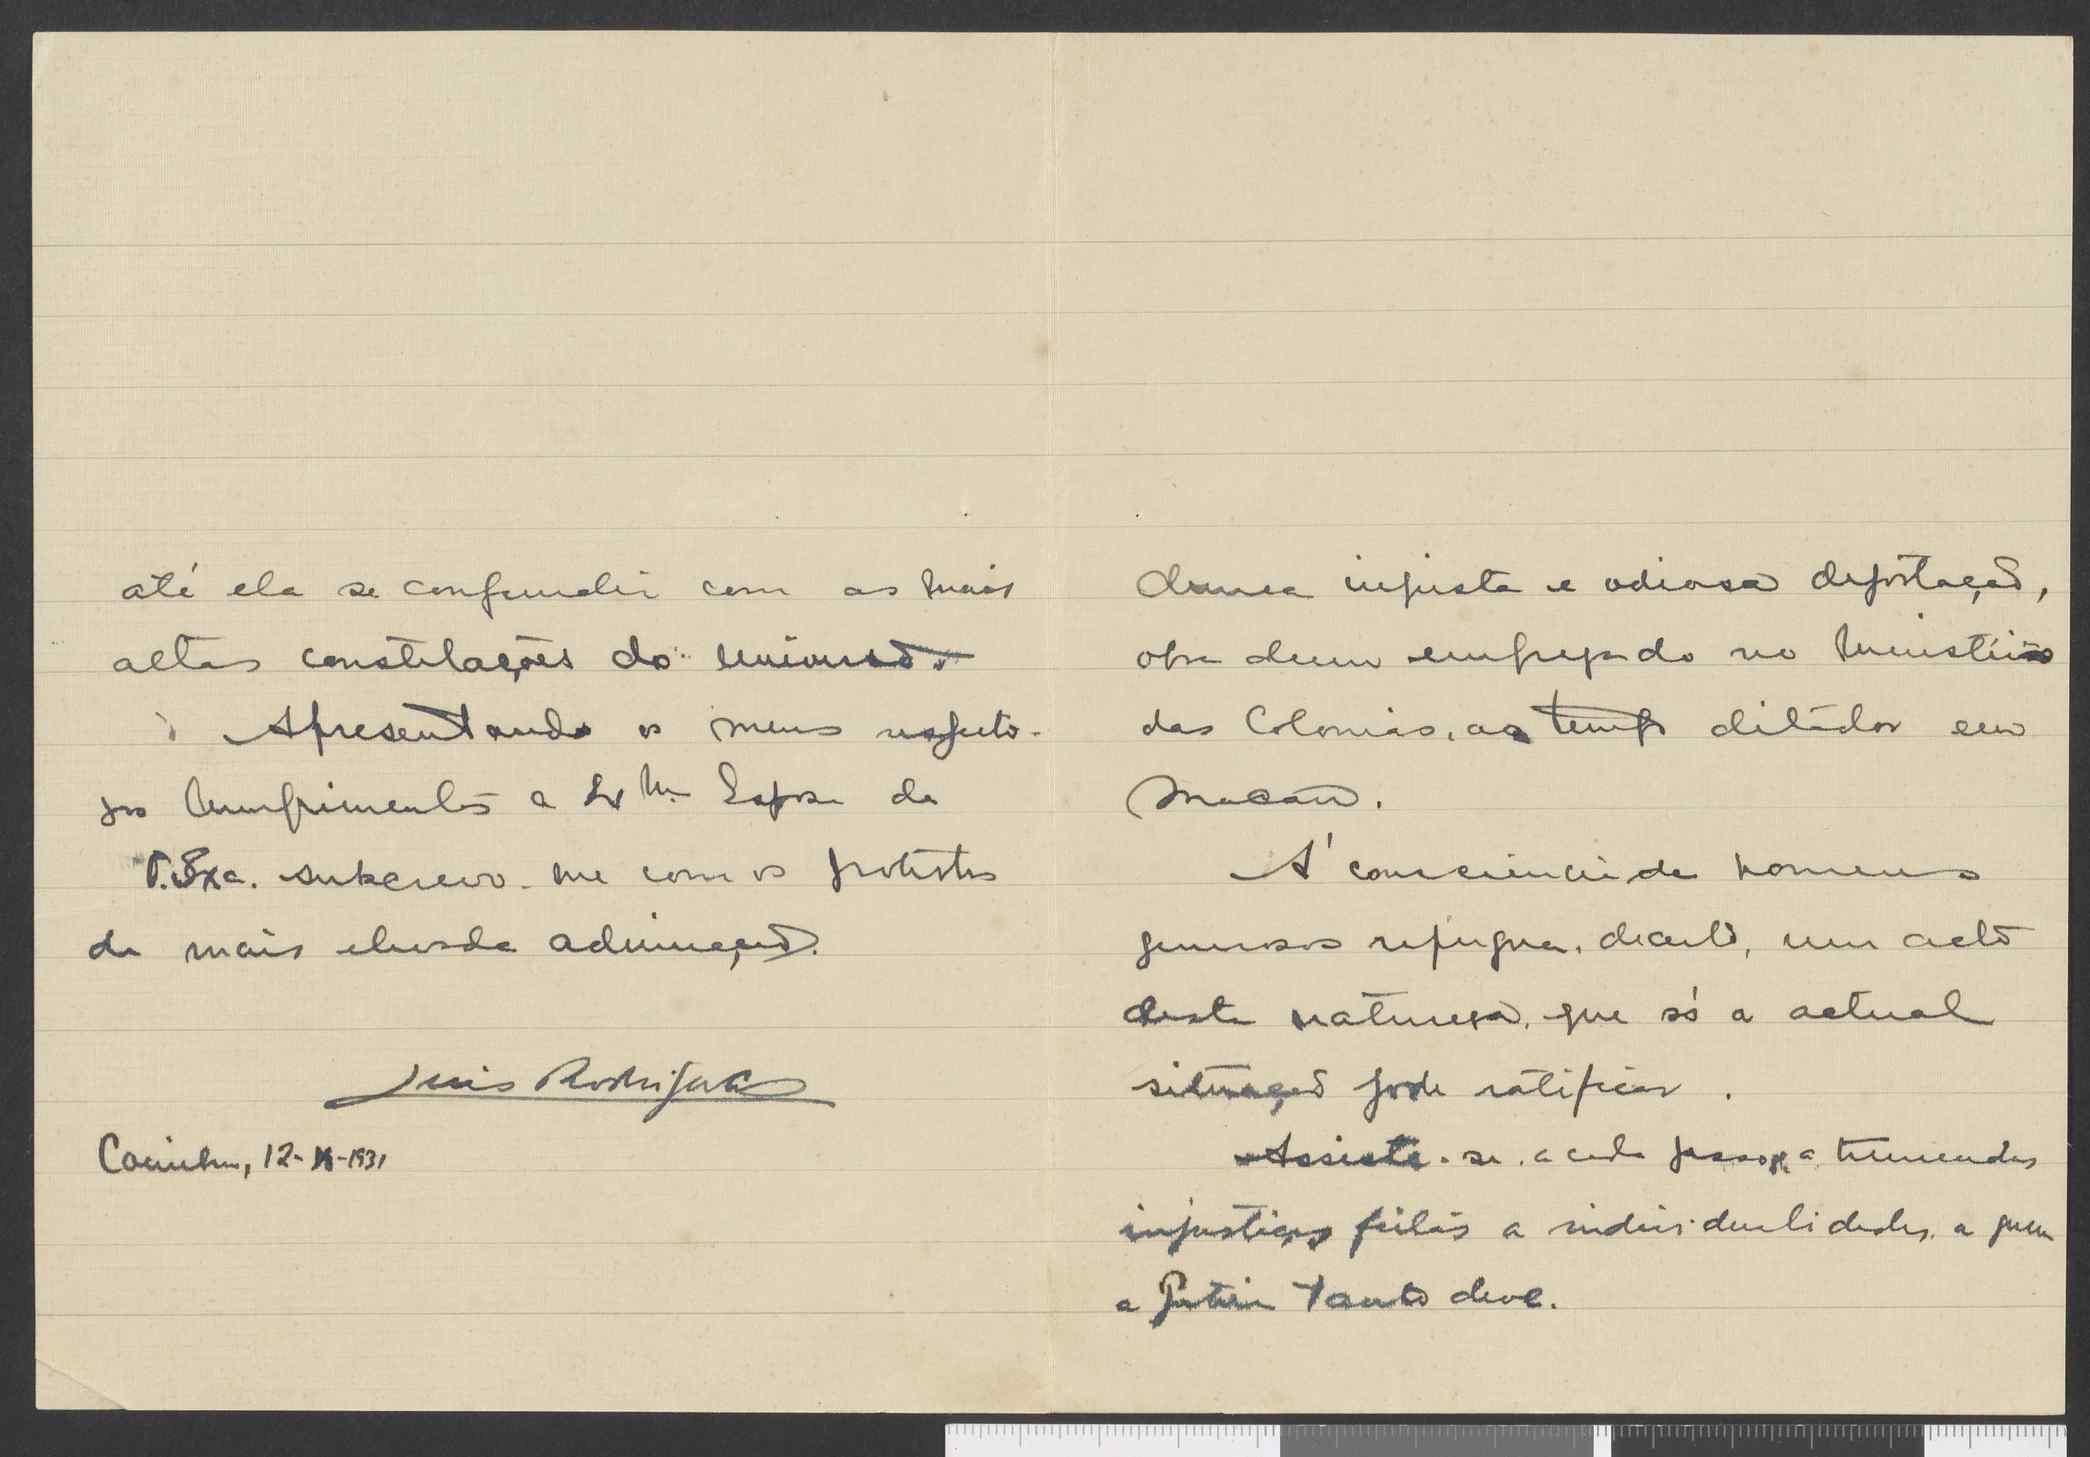 até ela se confundir com as mais
altas constelações do universo.
Apresentando os meus respeito-
sos cumprimentos a Ex.ma Esposa de
V. Exa. subscrevo-me com os protestos
da mais elevada admiração.
Luis Rodrigues
Coimbra, 12-XI-1931
duma injusta e odiosa deportação,
obra dum empregado no Ministério
das Colonias, ao tempo ditador em
Macau.
A' consciencia de homens
generosos repugna, decerto, um acto
desta natureza, que só a actual
situação pode ratificar.
Assiste-se, a cada passo, a tremendas
injustiças feitas a individualidades, a quem
a Patria tanto deve.